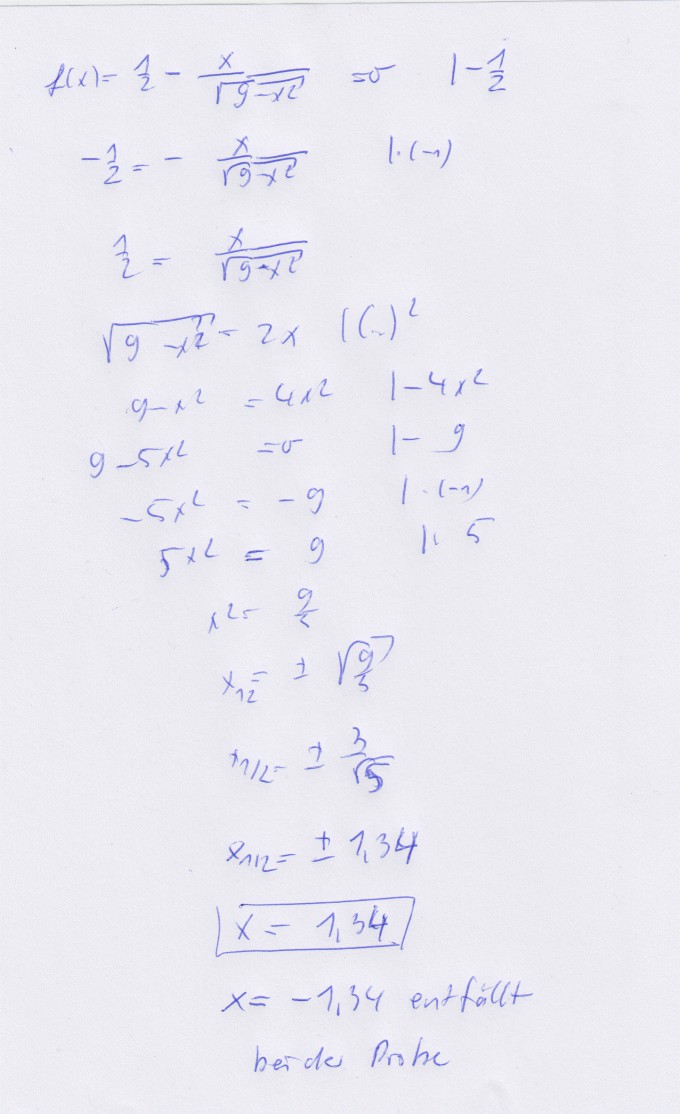 f(x)= 1/2 - x/√(9-x²) =0 |-1/2
-1/2 = - x/√(9-x²) |·(-1)
1/2 = x/√(9-x²)
√(9-x²) = 2x |(..)²
9-x² = 4x² |-4x²
9-5x² =0 |- 9
-5x² = -9 |·(-1)
5x² = 9 |: 5
x²= 9/5
x12= ± √(9/5)
x1/2= ± 3/√5
x1/2= ± 1,34
x= 1,34
x= -1,34 entfällt
bei der Probe